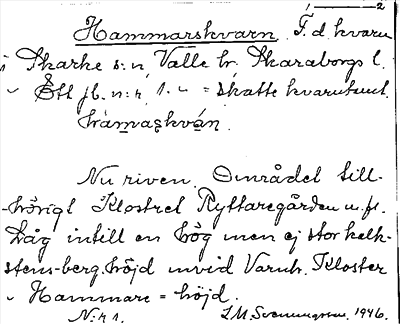 1 2
Hammarskvarn. F. d. kvarn
i Skarke s:n, Valle hr. Skaraborgs l.
Ett jb. n:r, 1. = skatte kvarntomt.
hàmaskván.
Nu riven. Området till-
hörigt Klostret Ryttaregården m. fl.
Låg intill en hög men ej stor kalk-
stens-berg höjd invid Varnh. Kloster
Hammare = höjd.
N:r 1. 1946.